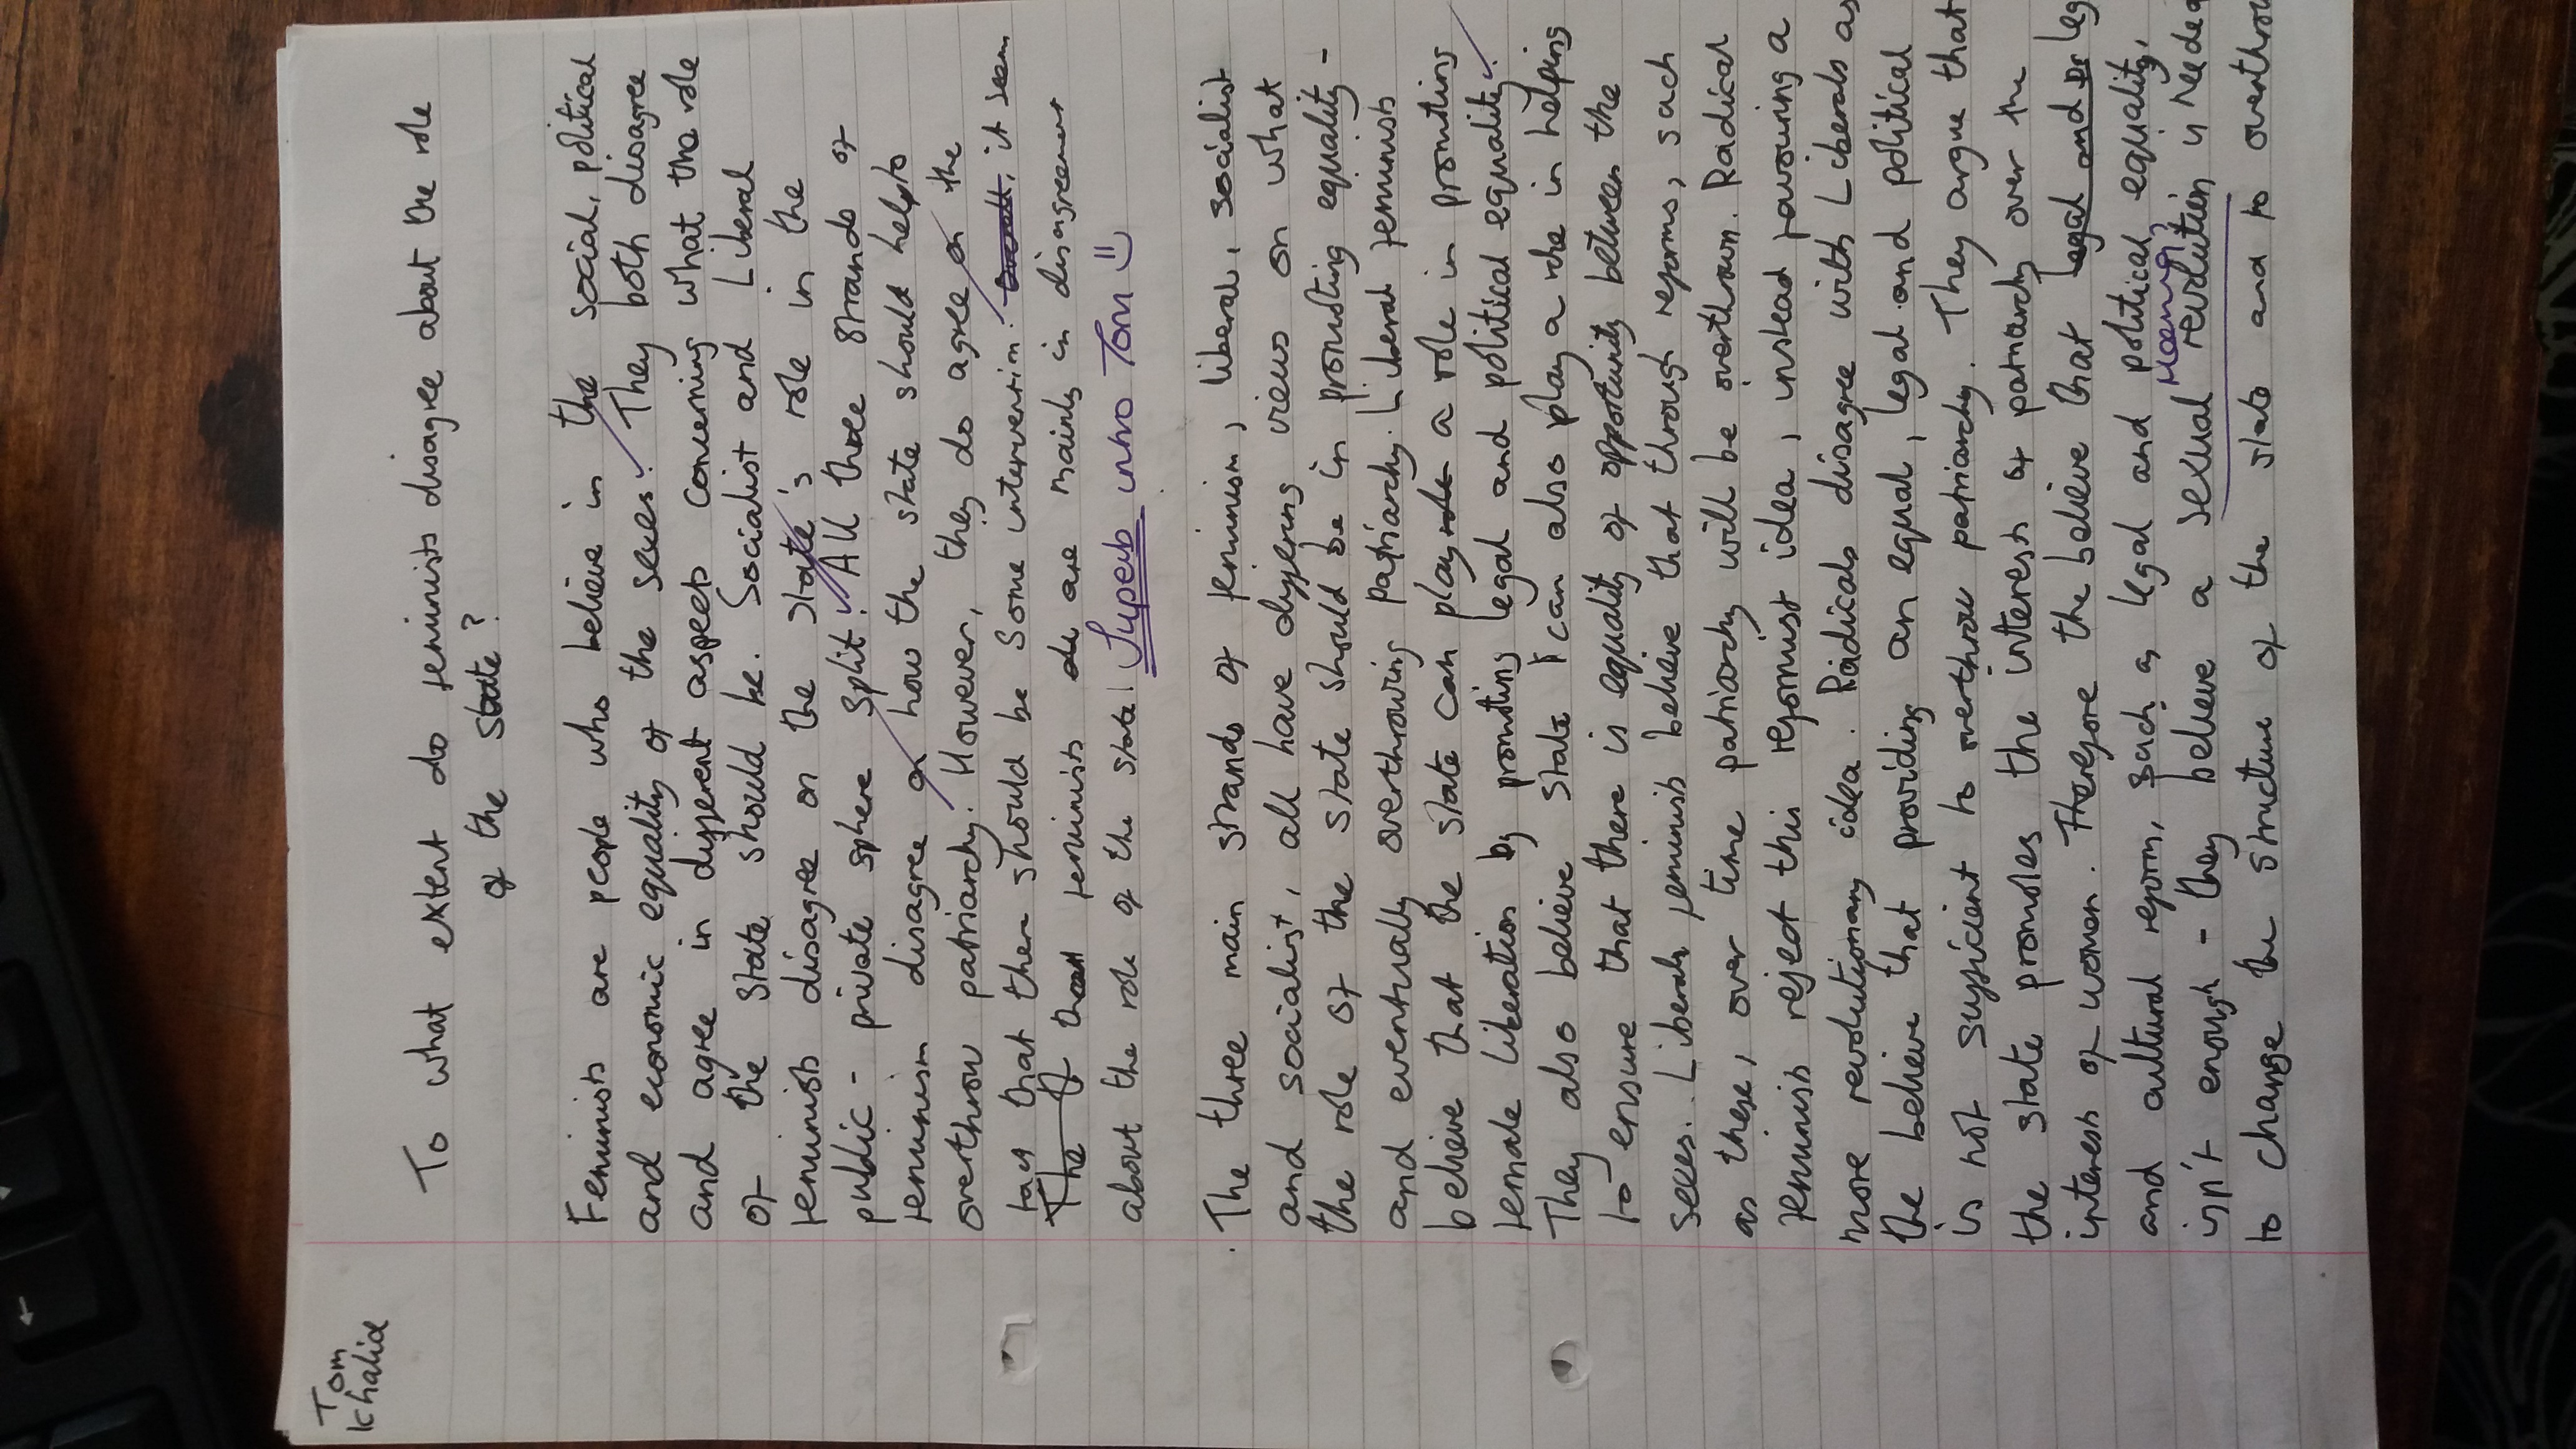 Tom
Khalid
To what extent do feminists disagree about the role
of the state?
Feminists are people who believe in the social, political
and economic equality of the sexes. They both disagree
and agree in different aspects concerning what the role
of the state should be. Socialist and Liberal
feminists disagree on the state's role in the
public - private sphere split. All three strands of
feminism disagree on how the state should help to
overthrow patriarchy. However, they do agree on the
fact that there should be some intervention. Overall, it seem
The If that feminists do are mainly in disagreement
about the role of the state. Superb intro Tom =)
. The three main strands of feminism, liberal, socialist
and socialist, all have differing views on what
the role of the state should be in promoting equality -
and eventually overthrowing patriarchy. Liberal feminists
believe that the state can play role a role in promoting
female liberation by promoting legal and political equality.
They also believe state can also play a role in helping
to ensure that there is equality of opportunity between the
sexes. Liberal feminists believe that through reforms, such
as these, over time patriarchy will be overthrown. Radical
feminists reject this reformist idea, instead favouring a
more revolutionary idea. Radicals disagree with Liberals as
the believe that providing an equal, legal and political
is not sufficient to overthrow patriarchy. They argue that
the state promotes the interests of patriarchy over the
interests of women. Therefore the believe that legal and leg
and cultural reform, such as legal and political equality,
Meaning?
isn't enough - they believe a sexual revolution is needed
to change the structure of the state and to overthrow